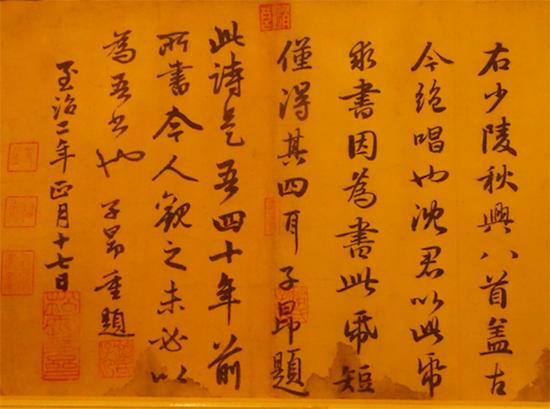 右少陵秋興八首蓋古
今絶唱也沈君以此㡧
求書因為書此㡧短
僅得其四耳子昂題
此詩是吾四十年前
所書今人觀之未必以
為吾書也子昂重題
至治二年正月十七日